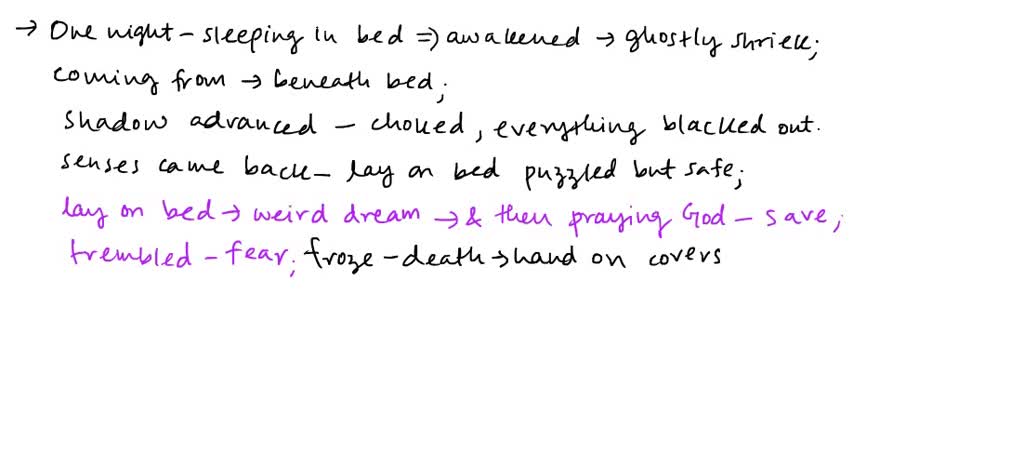 → One night - sleeping in bed ⇒ awakened → ghostly shriek;
coming from → beneath bed;
shadow advanced - choked, everything blacked out.
senses came back - lay on bed puzzled but safe;
lay on bed → weird dream → & then praying God - save;
trembled - fear; froze - death → hand on covers